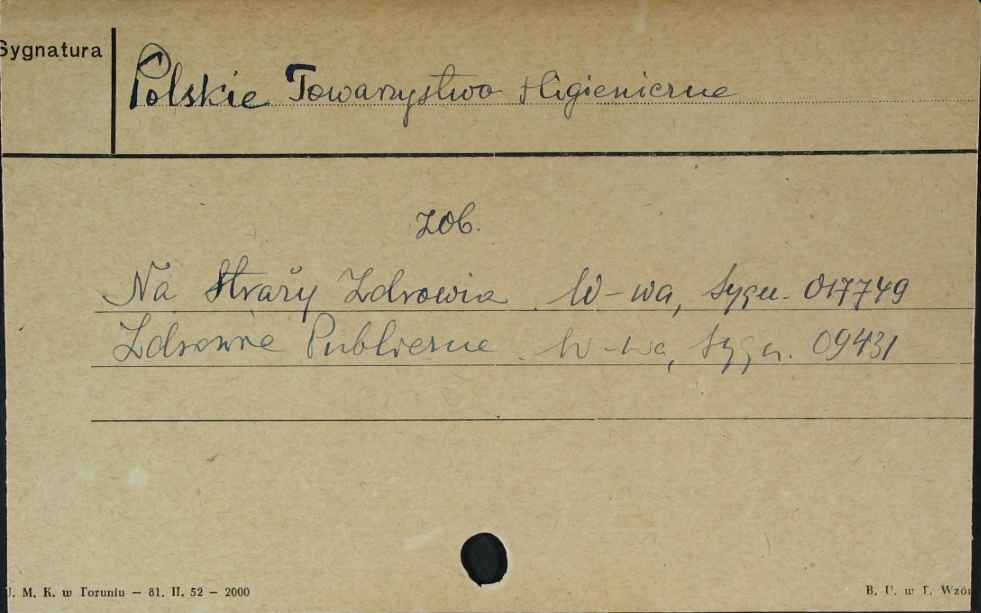 Sygnatura
Polskie Towarzystwo Higieniczne
zob.
Na Straży Zdrowia W-wa, Sygn. 017749
Zdrowie Publiczne W-wa, Sygn. 09431
U. M. K. w Toruniu — 81. II. 52 — 2000
B. U. w T. Wzór